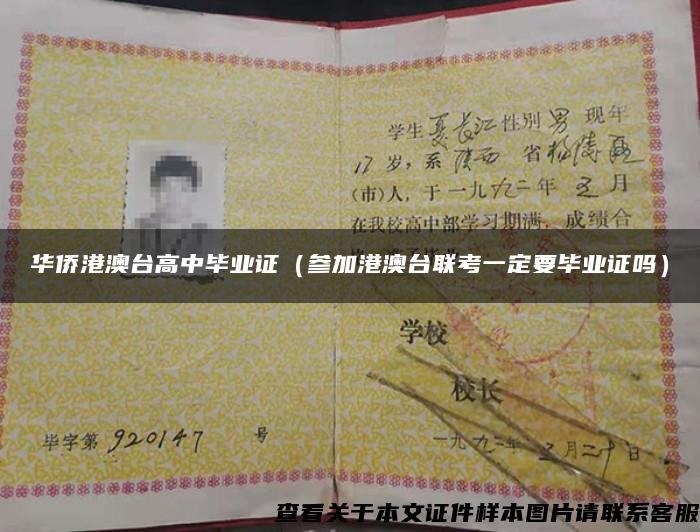 学生夏长江性别男现年
17岁，系陕西省杨陵区
(市)人，于一九九二年五月
在我校高中部学习期满，成绩合
华侨港澳台高中毕业证（参加港澳台联考一定要毕业证吗）
学校
校长
毕字第920147号
一九九二年五月二十日
查看关于本文证件样本图片请联系客服